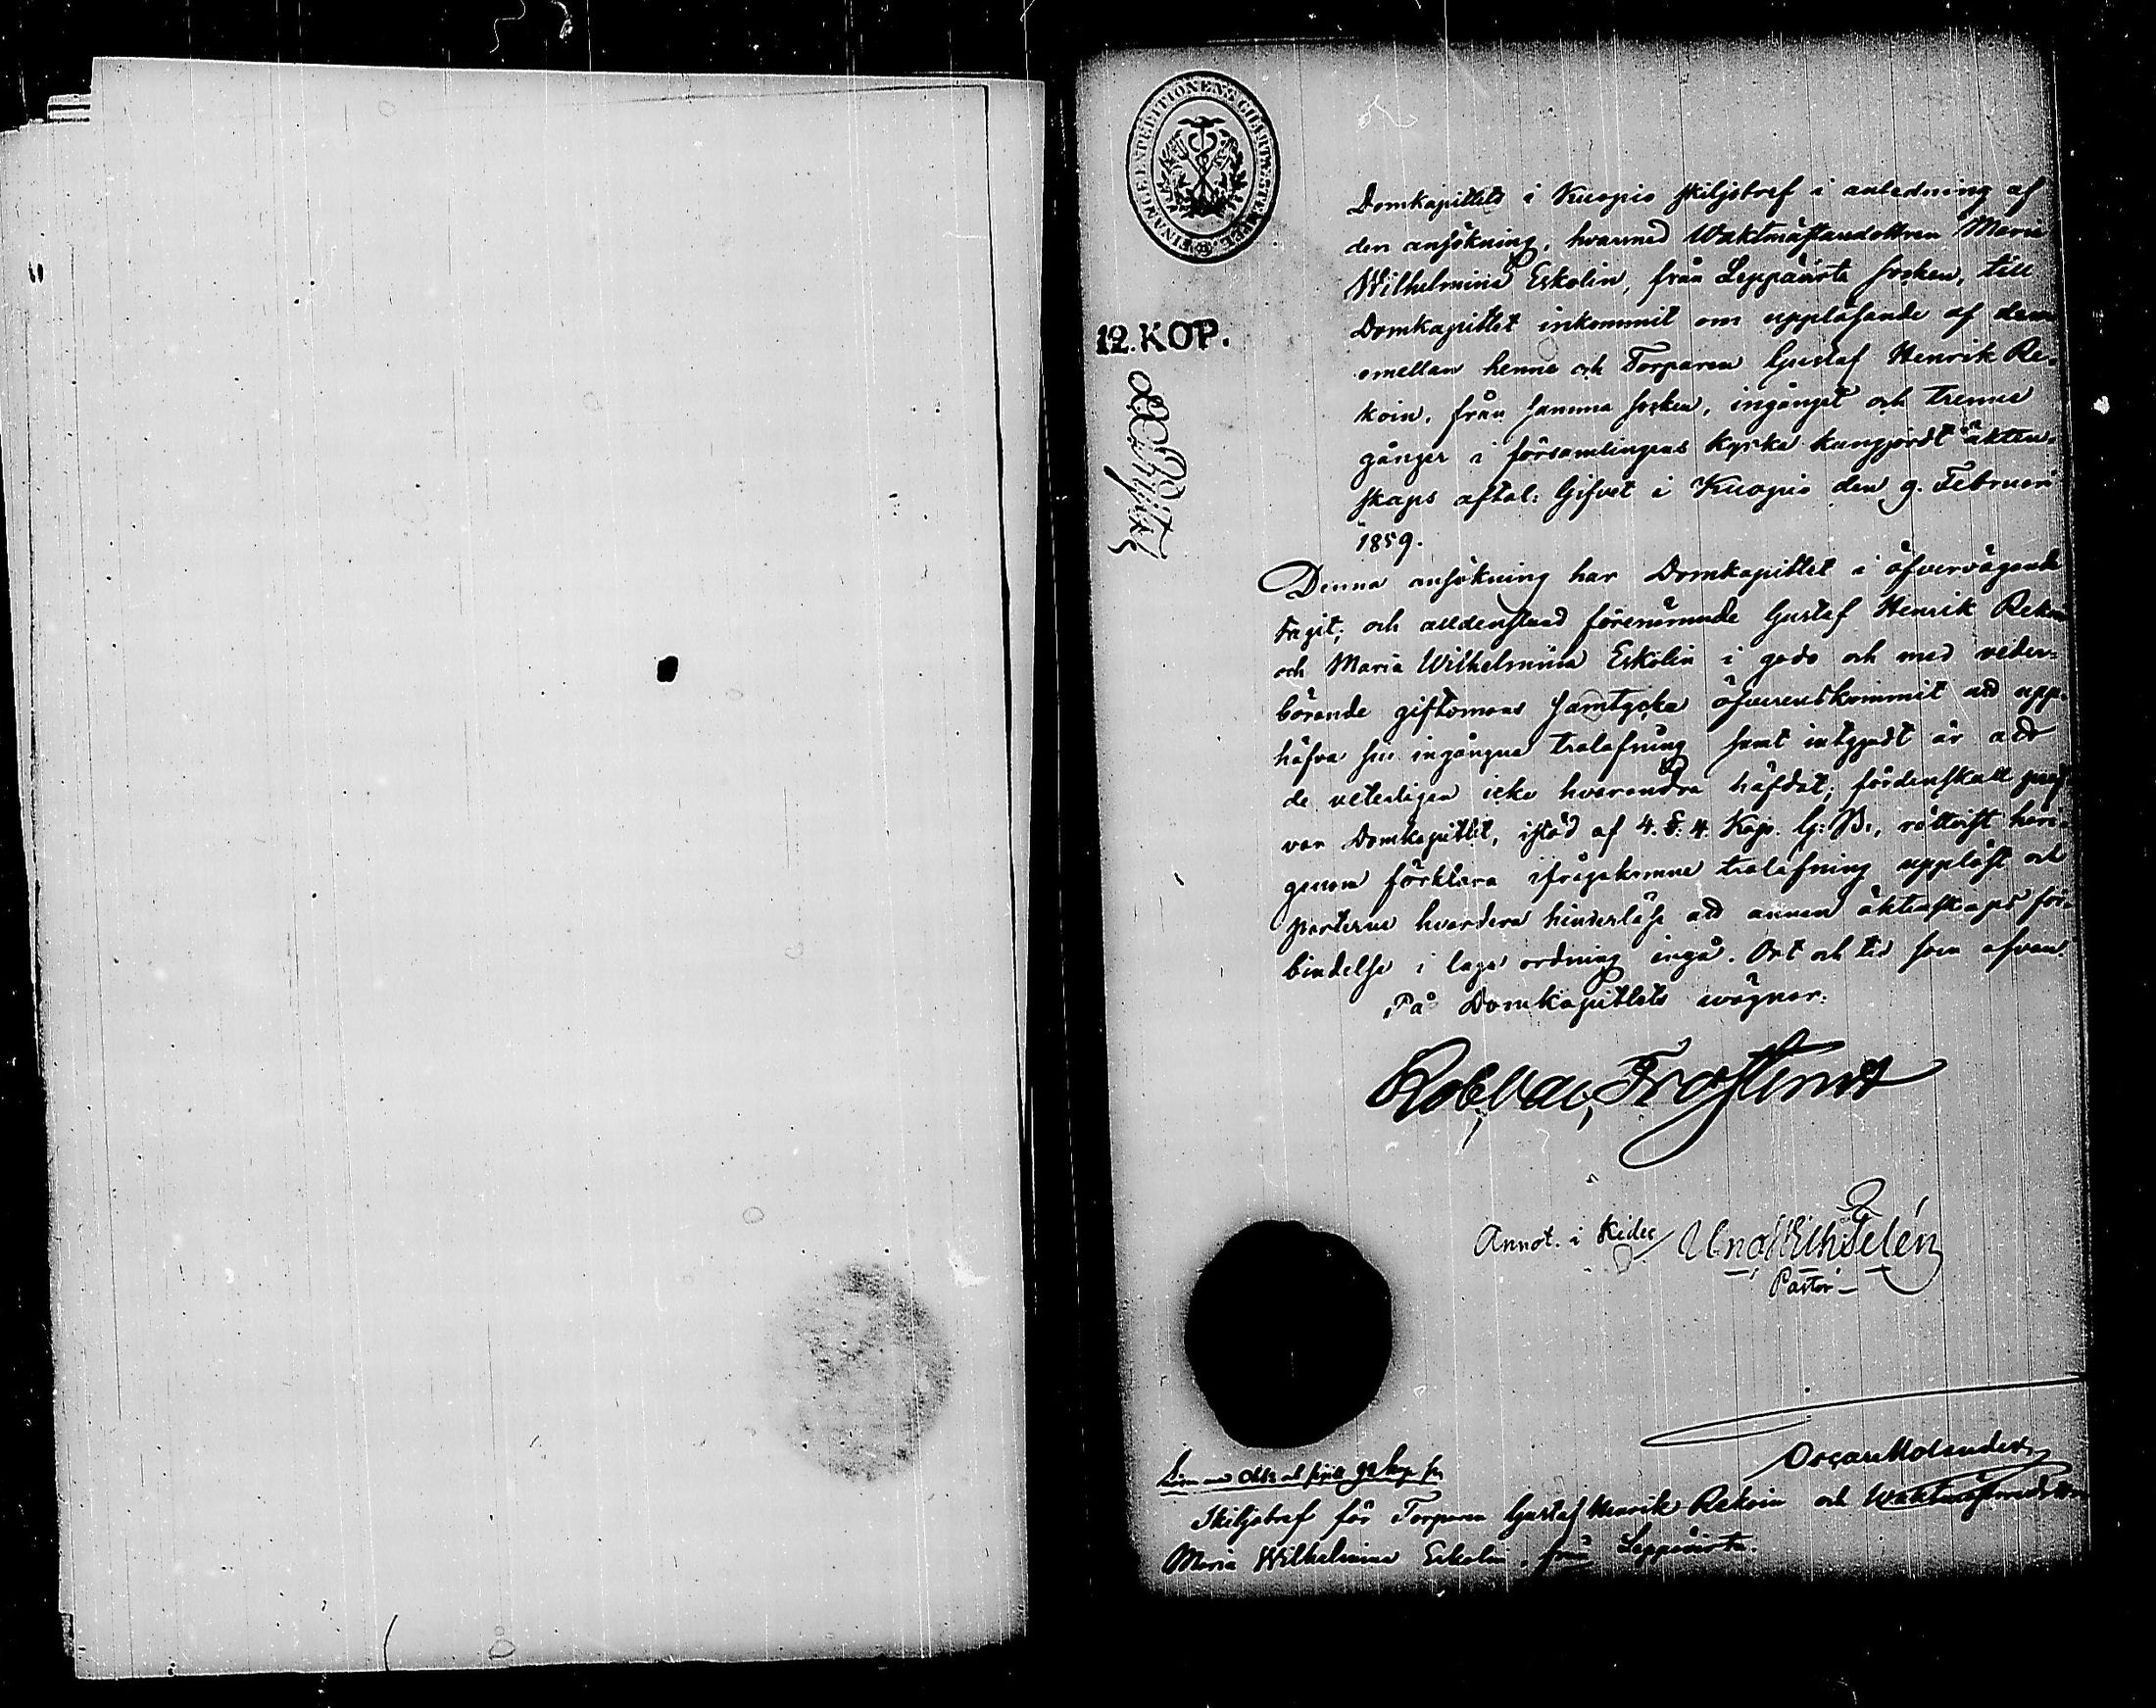 FINANCE EXPEDITIONENS CHARTÆ STEMPEL
12. KOP.
Domkapitlets i Kuopio skiljobref i anledning af
den ansökning, hvarmed Waktmästaredottren Maria
Wilhelmina Eskolin, från Leppävirta socken, till
Domkapitlet inkommit om upplösande af dem
emellan henne och Torparen Gustaf Henrik Re-
koin, från samma socken, ingånget och trenne
gånger i församlingens kyrka kungjordt äkten-
skaps aftal: Gifvet i Kuopio den 9. Februari
1859.
Denna ansökning har Domkapitlet i öfvervägande
tagit; och alldenstund förenämnde Gustaf Henrik Rekoin
och Maria Wilhelmina Eskolin i godo och med veder-
börande giftomans samtycke öfverenskommit att upp-
häfva sin ingångna trolofning samt intygadt är att
de veterligen icke hvarandra häfdat; fördenskull
Domkapitlet, i stöd af 4. §. 4. Kap. G. B., rättvist här-
genom förklara ifrågakomne trolofning upplöst och
parterne hvardera hinderlöse att annan äktenskaps för-
bindelse i laga ordning ingå. Ort och tid som ofvan.
På Domkapitlets vägnar:
Rob. Val. Frosterus
Annot. i Kides Uno Wilh Telén
Pastor
Oscar Molander
Skiljobref för Torparen Gustaf Henrik Rekoin och Waktmästaredottren
Maria Wilhelmina Eskolin, från Leppävirta.